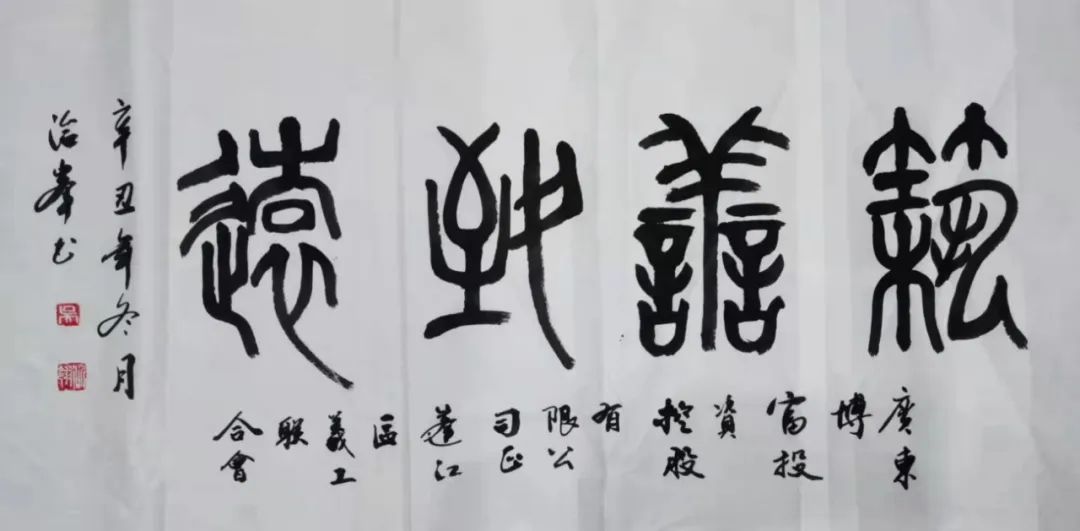 善致遠
廣東博富投資控股有限公司
蓬江區義工联合會
辛丑年冬月
治峯书
吳